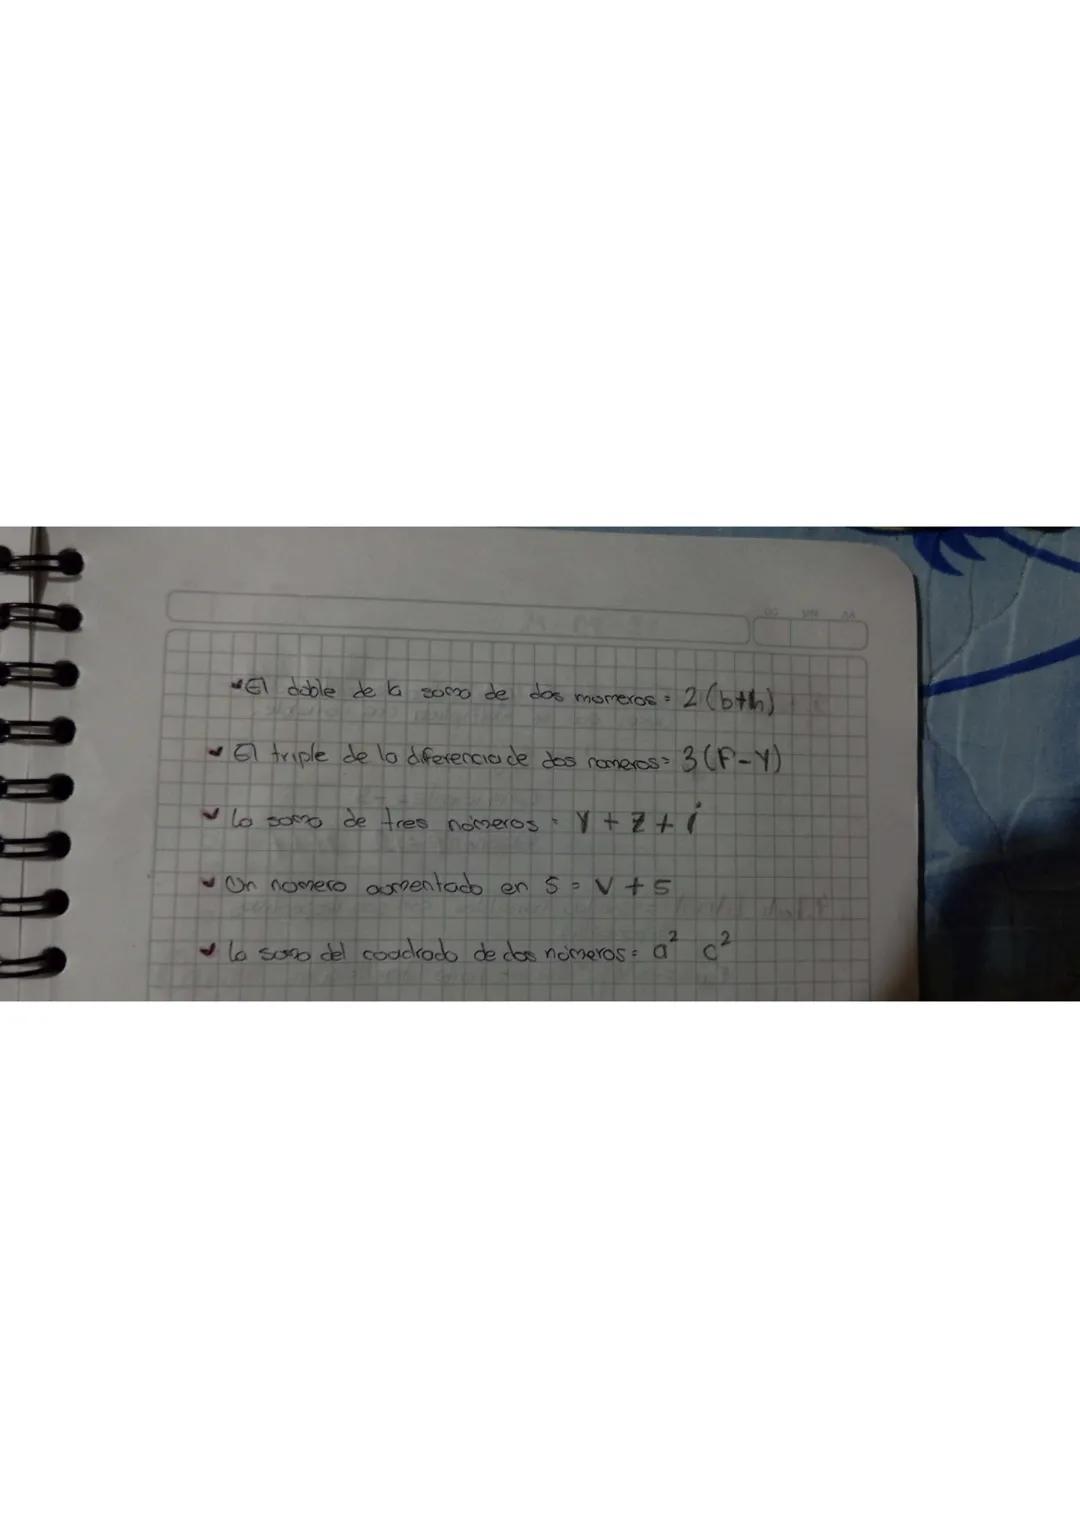 El doble de la suma de dos numeros = 2 (b+h)
El triple de la diferencia de dos numeros = 3 (F-Y)
la suma de tres números = Y + Z + i
Un numero aumentado en 5 = V + 5
la suma del cuadrado de dos números = a² c²